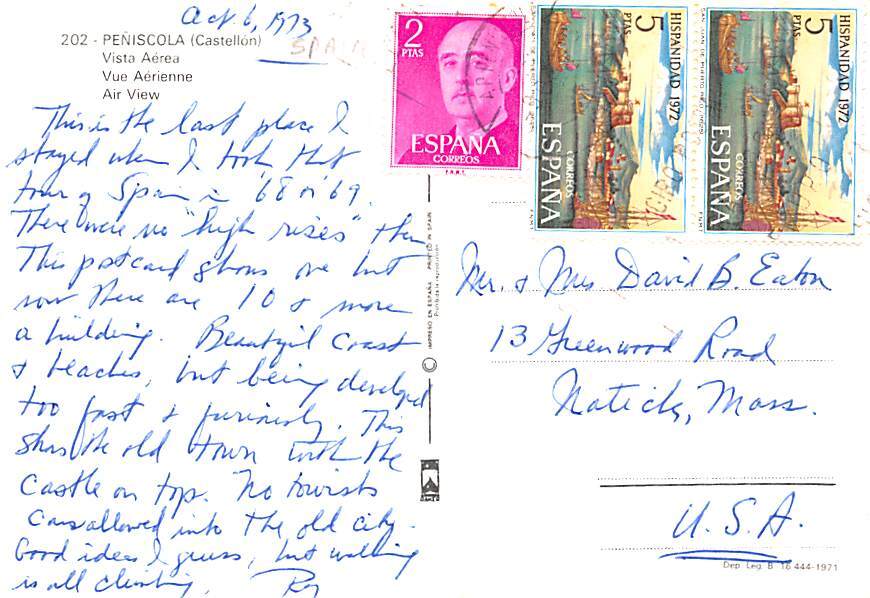 Oct 6, 1973
SPAIN
202 - PEÑISCOLA (Castellón)
Vista Aérea
Vue Aérienne
Air View
This is the last place I
stayed when I took that
tour of Spain in '68 or '69.
There were no "high rises" then
This postcard shows one but
now there are 10 & more
a building. Beautiful Coast
& beaches, but being developed
too fast & furiously. This
shows the old town with the
Castle on top. No tourists
cars allowed into the old city.
Good idea I guess, but walking
is all climbing, Roy
2
PTAS
ESPAÑA
CORREOS
F.N.M.T.
5
PTAS
HISPANIDAD 1972
SAN JUAN DE PUERTO RICO
CORREOS
ESPAÑA
5
PTAS
HISPANIDAD 1972
SAN JUAN DE PUERTO RICO
CORREOS
ESPAÑA
IMPRESO EN ESPAÑA PRINTED IN SPAIN
Prohibida la reproducción
Mr. & Mrs David B. Eaton
13 Greenwood Road
Natick, Mass.
U.S.A.
Dep. Leg. B 16.444-1971